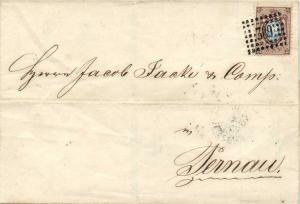 Herrn Jacob Jacke & Comp:
in
Pernau.